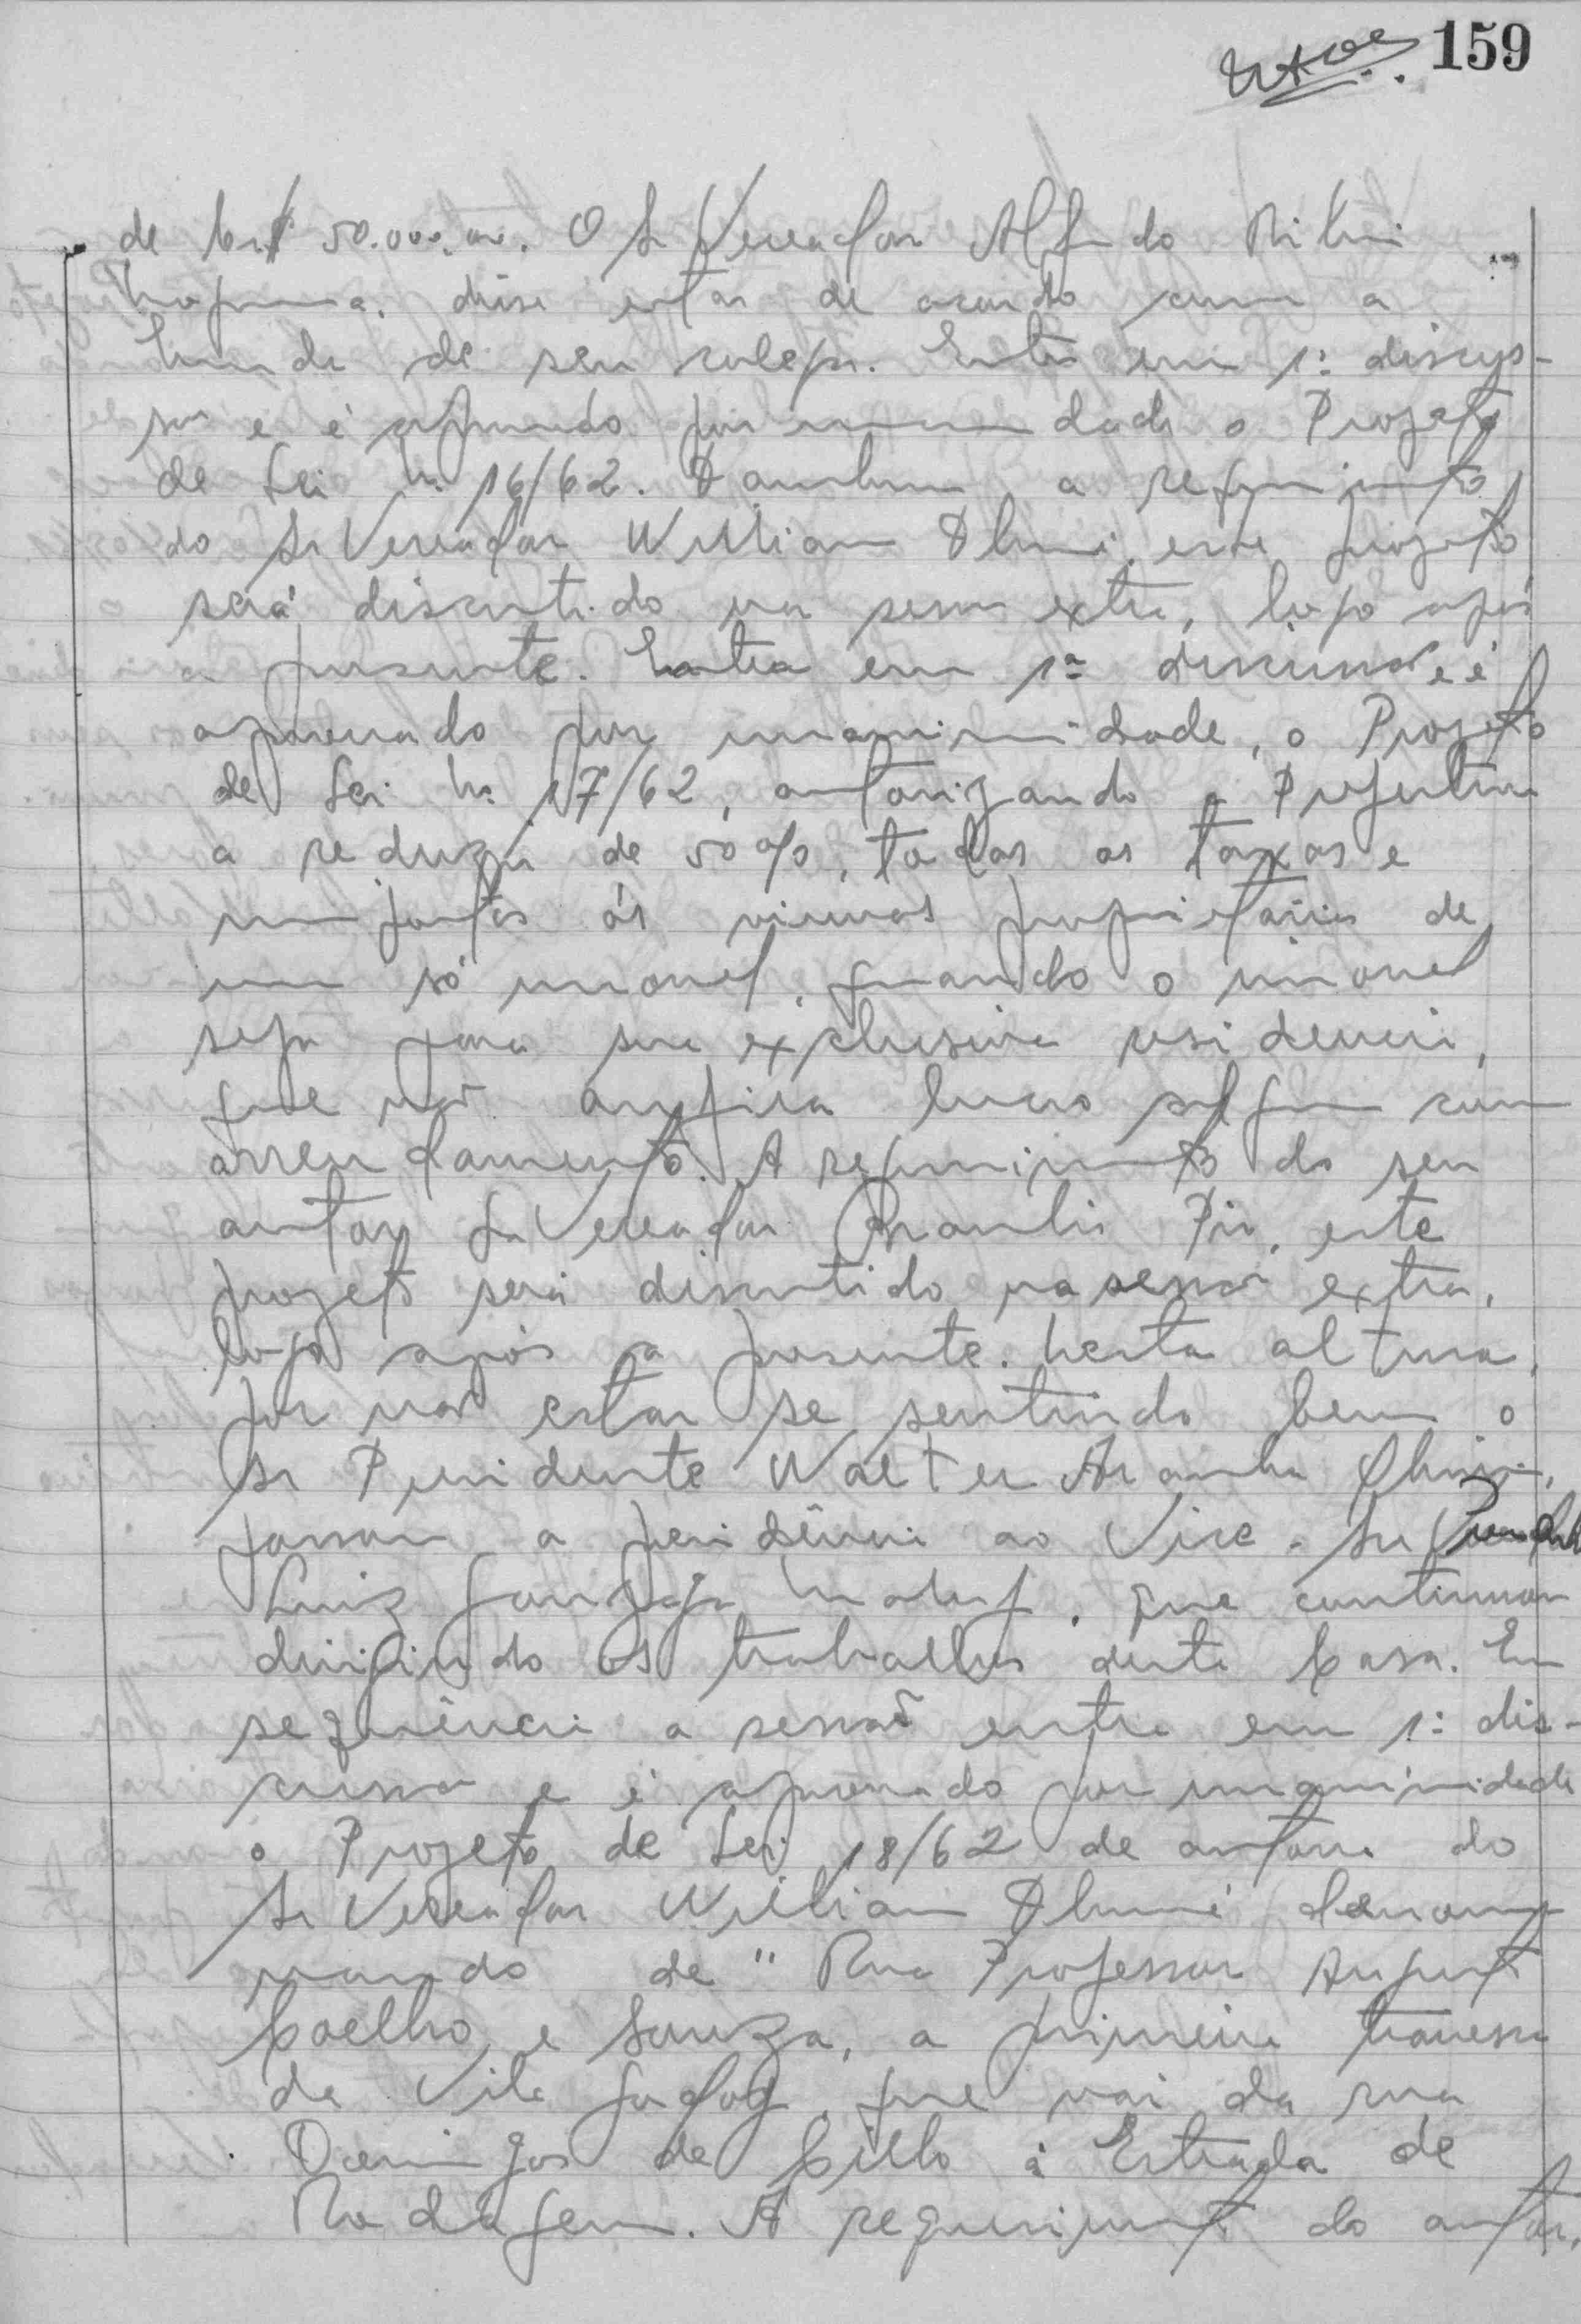 159
de Cr$ 50.000,00. O Sr Vereador Alfredo
disse estar de acordo com a
de seu colega. Entra em 1ª discus-
são e é aprovado por unanimidade o Projeto
de Lei nº 16/62. Tambem a requerimento
do Sr Vereador Willian este projeto
será discutido na sessão extra, logo após
a presente. Entra em 1ª discussão e é
aprovado por unanimidade, o Projeto
de Lei nº 17/62, autorizando a Prefeitura
a reduzir de 50%, todas as taxas e
impostos ás viuvas proprietárias de
um só imovel, quando o imovel
seja para sua exclusiva residencia,
que não aufira lucro algum com
arrendamento. A requerimento do seu
autor Sr Vereador Pio, este
projeto será discutido na sessão extra,
logo após a presente. Nesta altura,
por não estar se sentindo bem o
Sr Presidente Walter Aranha
passou a presidência ao Vice - Sr
Luiz Gonzaga que continuou
dirigindo os trabalhos desta Casa. Em
sequência a sessão entra em 1ª dis-
cussão e é aprovado por unanimidade
o Projeto de Lei 18/62 de autoria do
Sr Vereador Willian denomi
nando de " Rua Professor Augusto
Coelho e Souza, a primeira travessa
da Vila que vai da rua
Domingos de Cillo á Estrada de
Rodagem. A requerimento do autor,